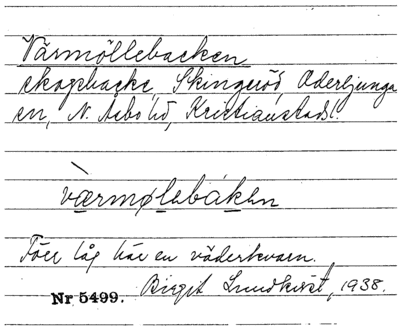 Värmöllebacken
skogsbacke, Skingeröd, Oderljunga
sn, N. Åsbo hd, Kristianstads l.
værmølebaken
Förr låg här en väderkvarn.
Birgit Lundkvist, 1938.
Nr 5499.